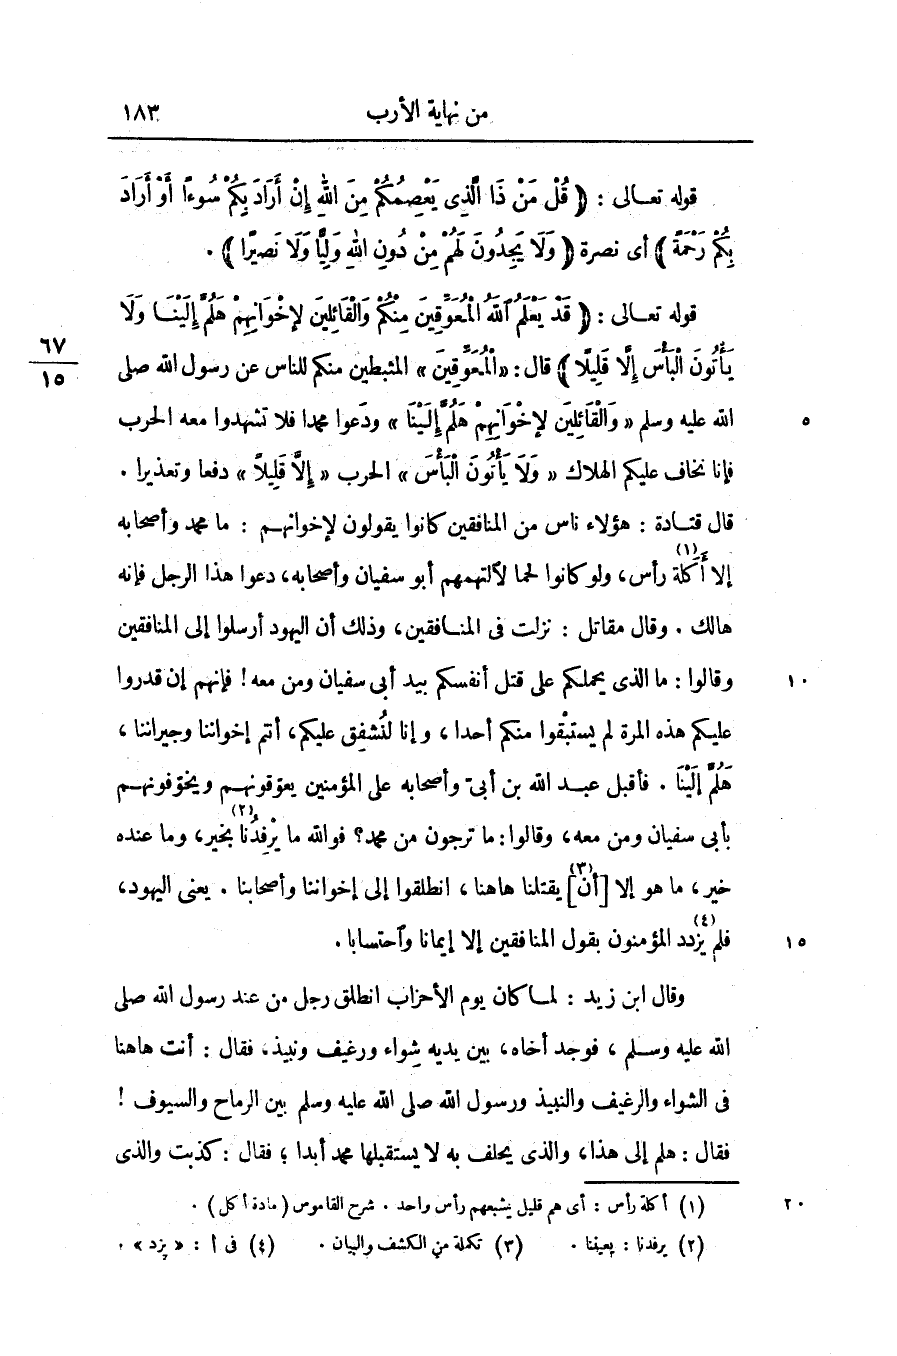 من نهاية الأرب ١٨٣
قوله تعالى : ﴿ قُلْ مَنْ ذَا الَّذِى يَعْصِمُكُمْ مِنَ اللهِ إِنْ أَرَادَ بِكُمْ سُوءًا أَوْ أَرَادَ
بِكُمْ رَحْمَةً ﴾ أى نصرة ﴿ وَلَا يَجِدُونَ لَهُمْ مِنْ دُونِ اللهِ وَلِيًّا وَلَا نَصِيرًا ﴾ .
قوله تعالى : ﴿ قَدْ يَعْلَمُ ٱللهُ الْمُعَوِّقِينَ مِنْكُمْ وَالْقَائِلِينَ لِإِخْوَانِهِمْ هَلُمَّ إِلَيْنَا وَلَا
٦٧
١٥
يَأْتُونَ الْبَأْسَ إِلَّا قَلِيلًا ﴾ قال : «الْمُعَوِّقِينَ» المثبطين منكم للناس عن رسول الله صلى
٥ الله عليه وسلم « وَالْقَائِلِينَ لِإِخْوَانِهِمْ هَلُمَّ إِلَيْنَا » ودَعوا محمدا فلا تشهدوا معه الحرب
فإنا نخاف عليكم الهلاك « وَلَا يَأْتُونَ الْبَأْسَ » الحرب « إِلَّا قَلِيلًا » دفعا وتعذيرا .
قال قتادة : هؤلاء ناس من المنافقين كانوا يقولون لإخوانهم : ما محمد وأصحابه
إلا أَكَلة (١) رأس، ولو كانوا لحما لآلتهمهم أبو سفيان وأصحابه، دعوا هذا الرجل فإنه
هالك . وقال مقاتل : نزلت فى المنافقين، وذلك أن اليهود أرسلوا إلى المنافقين
١٠ وقالوا : ما الذى يحملكم على قتل أنفسكم بيد أبى سفيان ومن معه! فإنهم إن قدروا
عليكم هذه المرة لم يستبْقوا منكم أحدا ، وإنا لنُشفِق عليكم، أنتم إخواننا وجيراننا ،
هَلُمَّ إِلَيْنَا . فأقبل عبد الله بن أبىّ وأصحابه على المؤمنين يعوّقونهم ويخوّفونهم
بأبى سفيان ومن معه، وقالوا: ما ترجون من محمد؟ فوالله ما يرْفِدُنا (٢) بخير، وما عنده
خير، ما هو إلا [أن] (٣) يقتلنا هاهنا ، انطلقوا إلى إخواننا وأصحابنا . يعنى اليهود،
١٥ فلم يزدد (٤) المؤمنون بقول المنافقين إلا إيمانا وآحتسابا .
وقال ابن زيد : لما كان يوم الأحزاب انطلق رجل من عند رسول الله صلى
الله عليه وسلم ، فوجد أخاه، بين يديه شِواء ورغيف ونبيذ، فقال : أنت هاهنا
فى الشواء والرغيف والنبيذ ورسول الله صلى الله عليه وسلم بين الرماح والسيوف !
فقال : هلم إلى هذا، والذى يحلف به لا يستقبلها محمد أبدا ؛ فقال : كذبت والذى
٢٠ (١) أكلة رأس : أى هم قليل يشبعهم رأس واحد . شرح القاموس (مادة أكل) .
(٢) يرفدنا : يعيننا . (٣) تكملة من الكشف والبيان . (٤) فى أ : « يزد » .